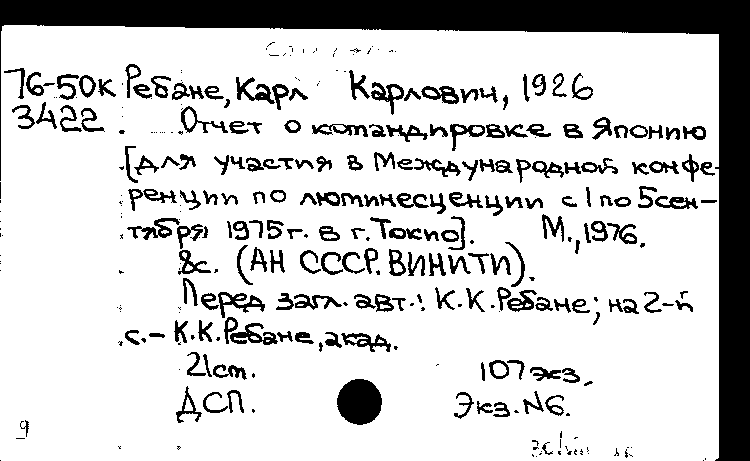 76-50к Ребане, Карл Карлович, 1926
3422 Отчет о командировке в Японию
[для участия в Международной конфе-
ренции по люминесценции с 1 по 5 сен-
тября 1975 г. в г. Токио]. М., 1976.
8с. (АН СССР. ВИНИТИ).
Перед загл. авт.: К.К.Ребане; на 2-й
с.- К.К.Ребане, акад.
21 см. 107 экз.
ДСП. Экз. №6.
9